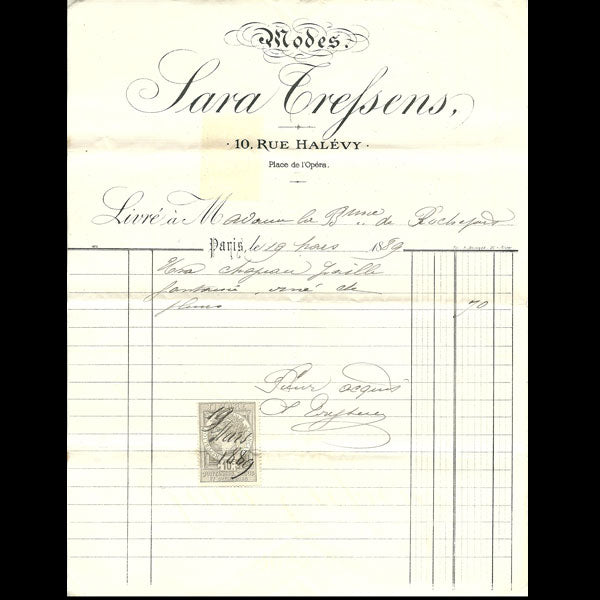 Modes.
Sara Tressens,
10, RUE HALÉVY
Place de l'Opéra.
Livré à Madame la Bnne de Rochefort
Paris, le 19 mars 1889
chapeau paille
fantaisie, orné de
fleurs 70
Pour acquis
19
Mars
1889
10